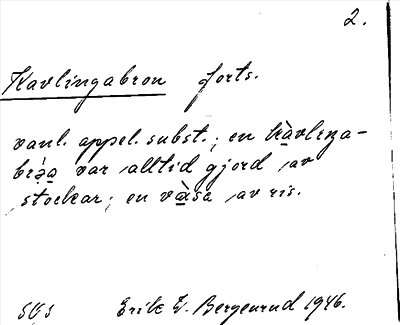 2.
Kavlingabron forts.
vanl. appel. subst.; en kàvlinga-
bróa var alltid gjord av
stockar; en vàsa av ris.
Erik E. Bergenrud 1946.